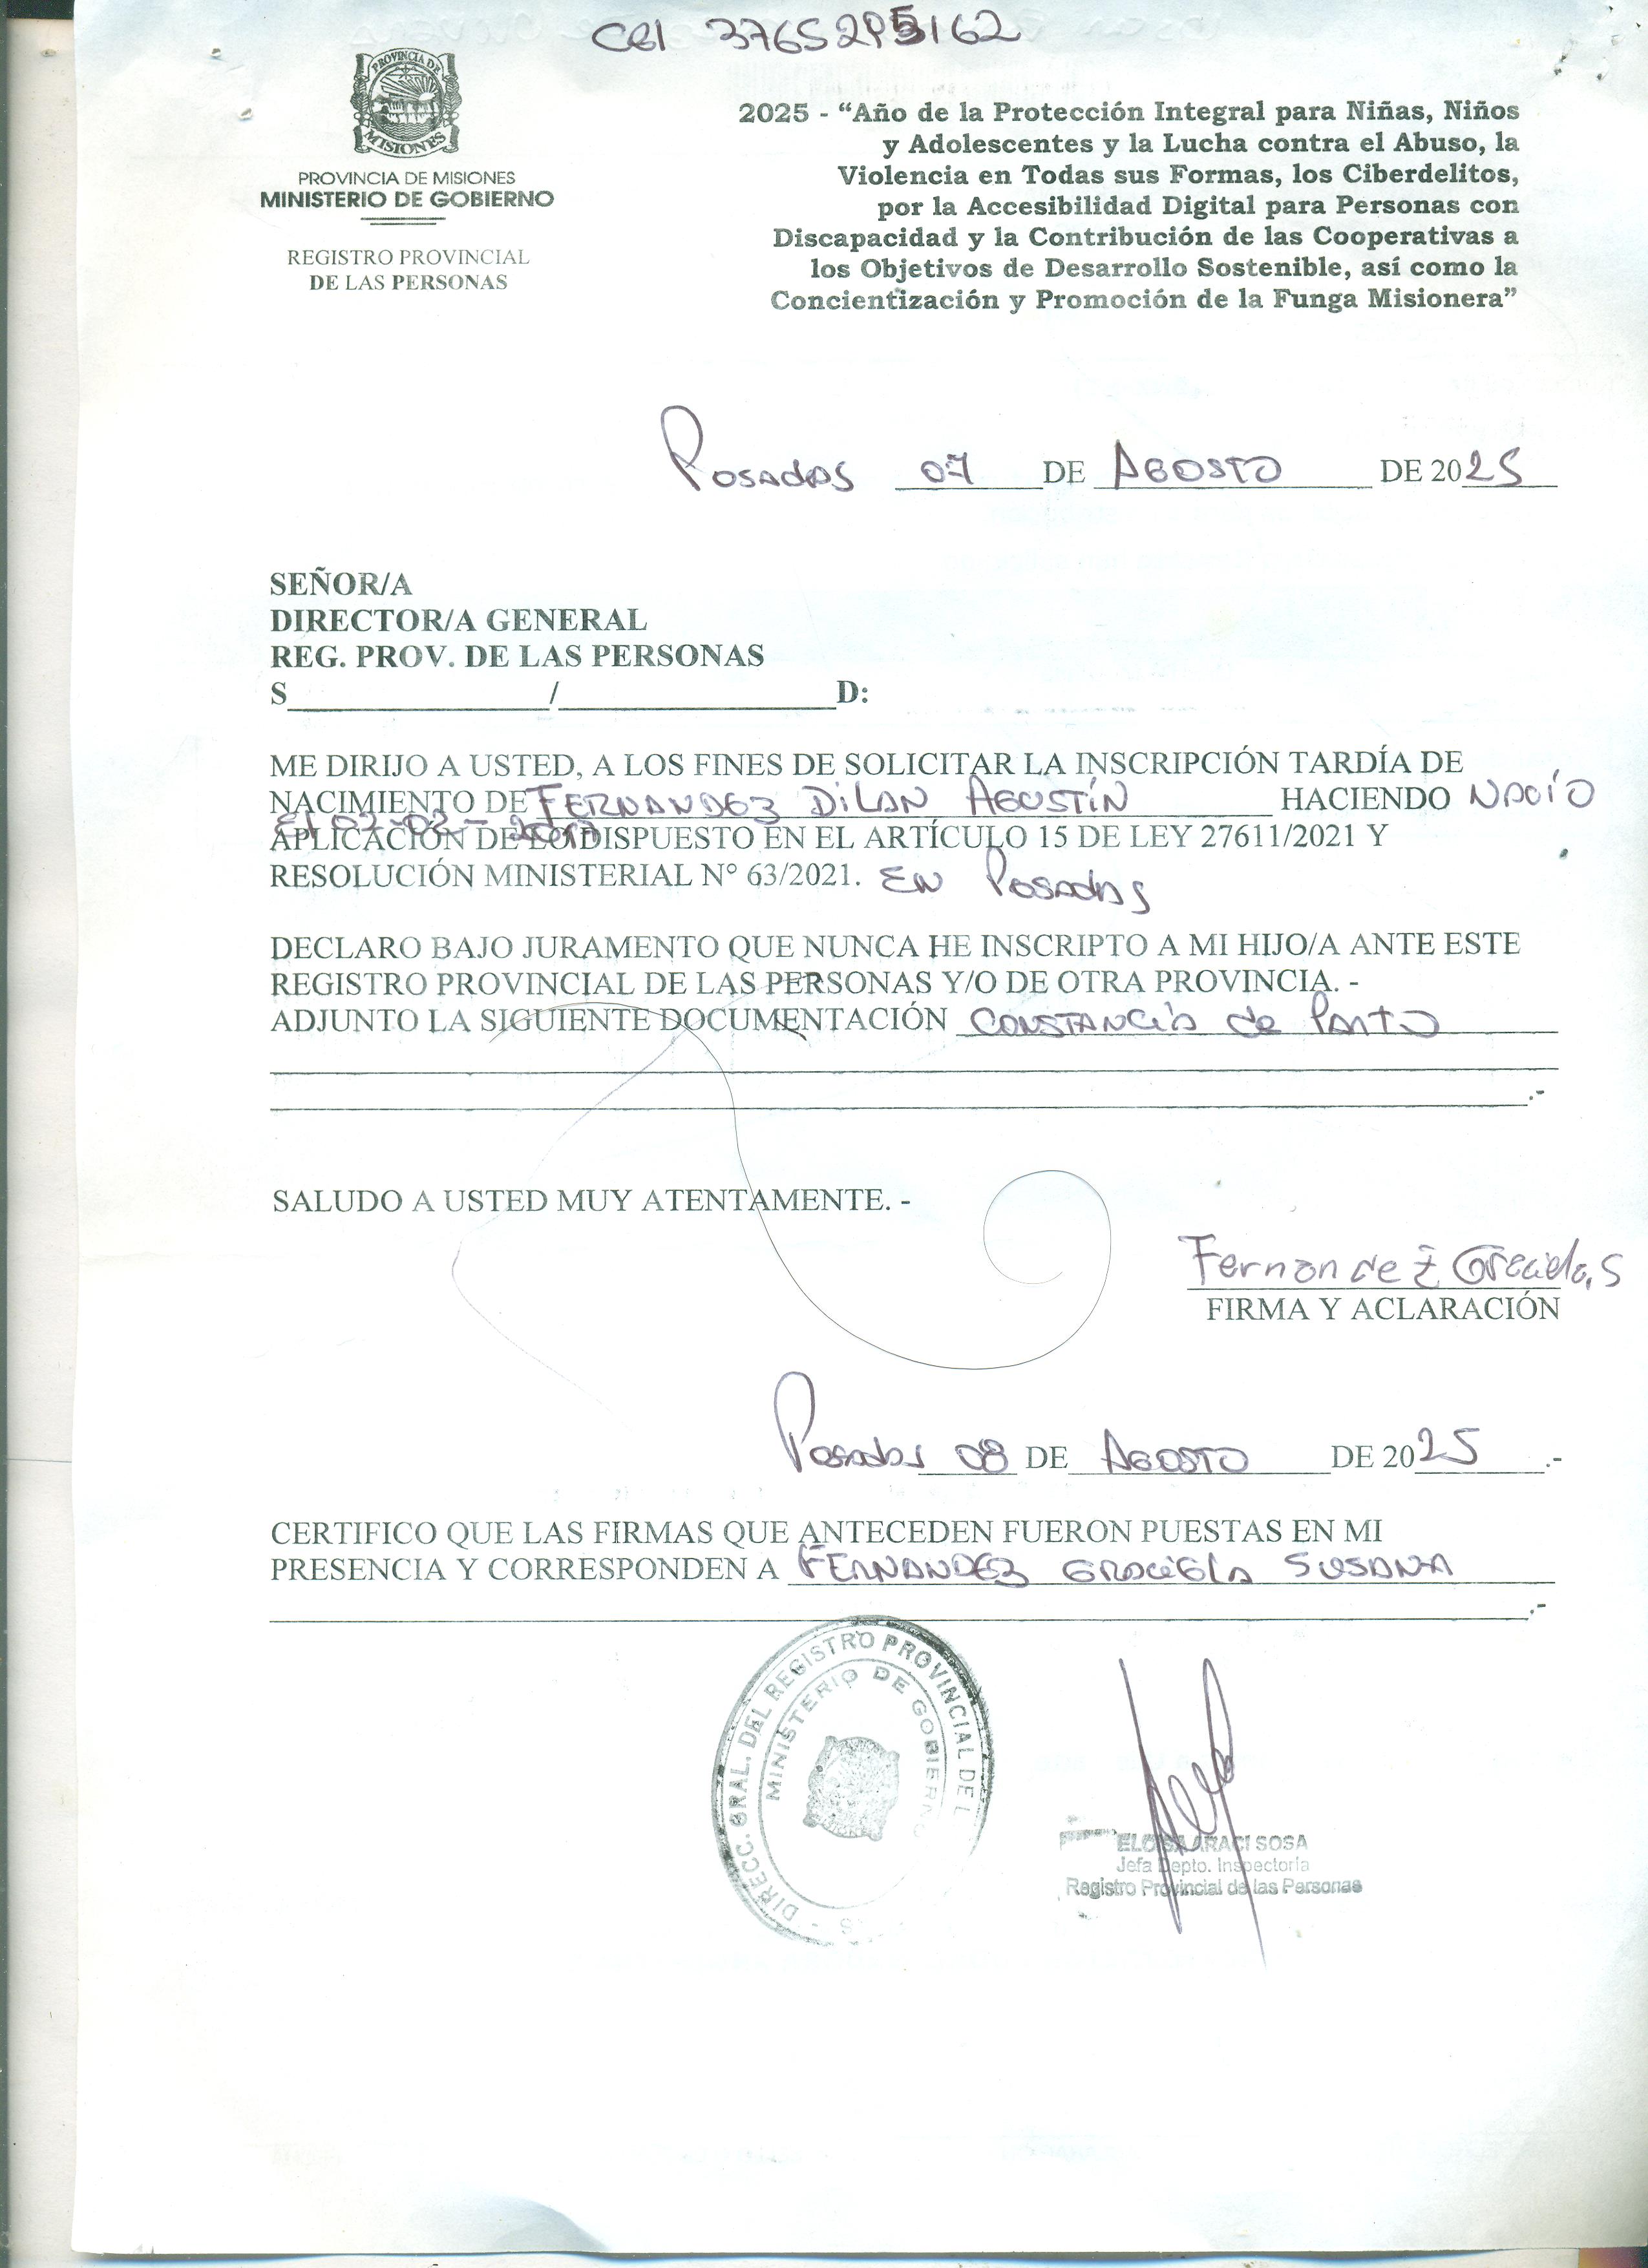 Cel 3765295162
PROVINCIA DE
MISIONES
PROVINCIA DE MISIONES
MINISTERIO DE GOBIERNO
REGISTRO PROVINCIAL
DE LAS PERSONAS
2025 - “Año de la Protección Integral para Niñas, Niños
y Adolescentes y la Lucha contra el Abuso, la
Violencia en Todas sus Formas, los Ciberdelitos,
por la Accesibilidad Digital para Personas con
Discapacidad y la Contribución de las Cooperativas a
los Objetivos de Desarrollo Sostenible, así como la
Concientización y Promoción de la Funga Misionera”
Posadas 07 DE AGOSTO DE 2025
SEÑOR/A
DIRECTOR/A GENERAL
REG. PROV. DE LAS PERSONAS
S____________/____________D:
ME DIRIJO A USTED, A LOS FINES DE SOLICITAR LA INSCRIPCIÓN TARDÍA DE
NACIMIENTO DE FERNANDEZ DILAN AGUSTÍN HACIENDO NACIO
El 02-02-
APLICACIÓN DE LO DISPUESTO EN EL ARTÍCULO 15 DE LEY 27611/2021 Y
RESOLUCIÓN MINISTERIAL N° 63/2021. EN Posadas
DECLARO BAJO JURAMENTO QUE NUNCA HE INSCRIPTO A MI HIJO/A ANTE ESTE
REGISTRO PROVINCIAL DE LAS PERSONAS Y/O DE OTRA PROVINCIA. -
ADJUNTO LA SIGUIENTE DOCUMENTACIÓN CONSTANCIA de Parto
.-
SALUDO A USTED MUY ATENTAMENTE. -
Fernandez Graciela, S
FIRMA Y ACLARACIÓN
Posadas 08 DE AGOSTO DE 2025.-
CERTIFICO QUE LAS FIRMAS QUE ANTECEDEN FUERON PUESTAS EN MI
PRESENCIA Y CORRESPONDEN A FERNANDEZ GRACIELA SUSANA
.-
DIRECC. GRAL. DEL REGISTRO PROVINCIAL DE L
MINISTERIO DE GOBIERNO
ELOISA ARACI SOSA
Jefa Depto. Inspectoria
Registro Provincial de las Personas